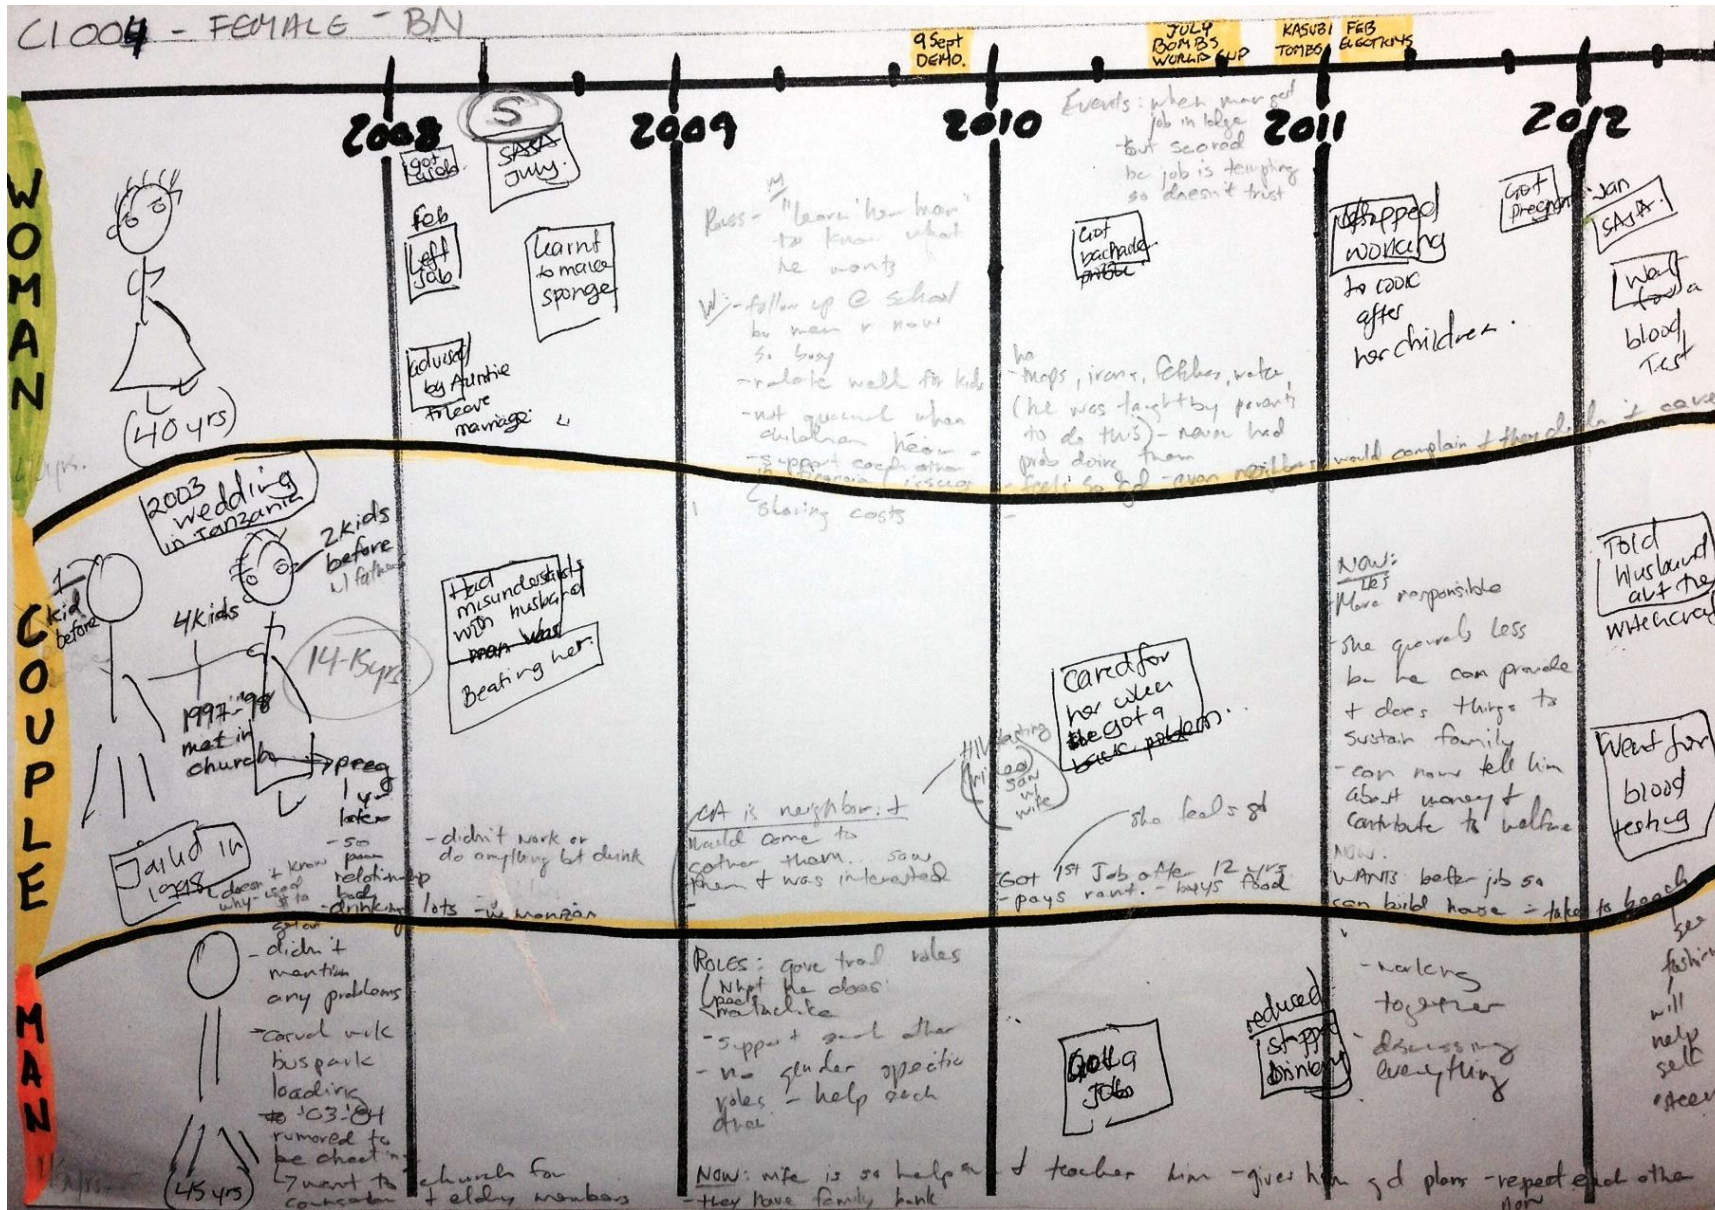 C1004 - FEMALE - BN
9 Sept
DEMO.
JULY
BOMBS
WORLD CUP
KASUBI
TOMBS
FEB
ELECTIONS
2008
2009
2010
2011
2012
WOMAN
(40 yrs)
got
a job.
S
SASA
July.
Feb
Left
Job
learnt
to make
sponge
advised
by Auntie
to leave
marriage.
"learn" her man"
to know what
he wants
W:- follow up @ school
so busy
- relate well for kids
- not quarrel when
children hear
- support each other
in financial issues
sharing costs
Events: when man got
job in lodge
but scared
bc job is tempting
so doesn't trust
Got
backache
he
- mops, irons, fetches, water,
(he was taught by parents
to do this) - never had
prob doing them
- feels so gd - even neighbors would complain + they didn't care
stopped
working
to look
after
her children.
Got
pregnant
Jan
SASA.
Went
for a
blood
Test
COUPLE
2003
wedding
in Tanzania
1
kid
before
2 kids
before
w/ father
4 kids
14-15yrs
1997-'98
met in
church
preg
1 yr
later
Jailed in
1998
doesn't know
- so
poor
relationship
bad
- drinking lots - womanizer
- didn't work or
do anything but drink
Had
misunderstands
with husband
man was
Beating her.
CA is neighbor. +
would come to
gather them.. saw
them + was interested
HIV testing
saw
w/
wife
cared for
her when
she got a
back problem..
she feels gd
Got 1st Job after 12 yrs
- pays rent. - buys food
NOW:
More responsible
- she quarrels less
bc he can provide
+ does things to
sustain family
- can now tell him
about money +
contribute to welfare
NOW.
WANTS better job so
can build house - takes to beach
Told
Husband
abt the
witchcraft
Went for
blood
testing
MAN
(45 yrs)
- didn't
mention
any problems
- casual work
buspark
loading
to '03-'04
rumored to
be cheating
went to church for
+ elderly members
ROLES: gave trad roles
What he does:
- support each other
- no gender specific
roles - help each
other
NOW: wife is so helpful + teaches him - gives him gd plans - respect each other
now
- they have family bank
Got a
Job
reduced
stopped
Drinking
- working
together
- discussing
everything
see
fashion
will
help
self
esteem